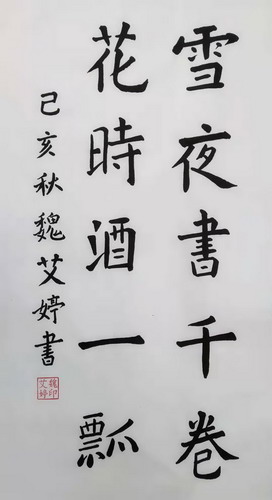 雪夜書千卷
花時酒一瓢
己亥秋魏艾婷書
魏印
艾婷